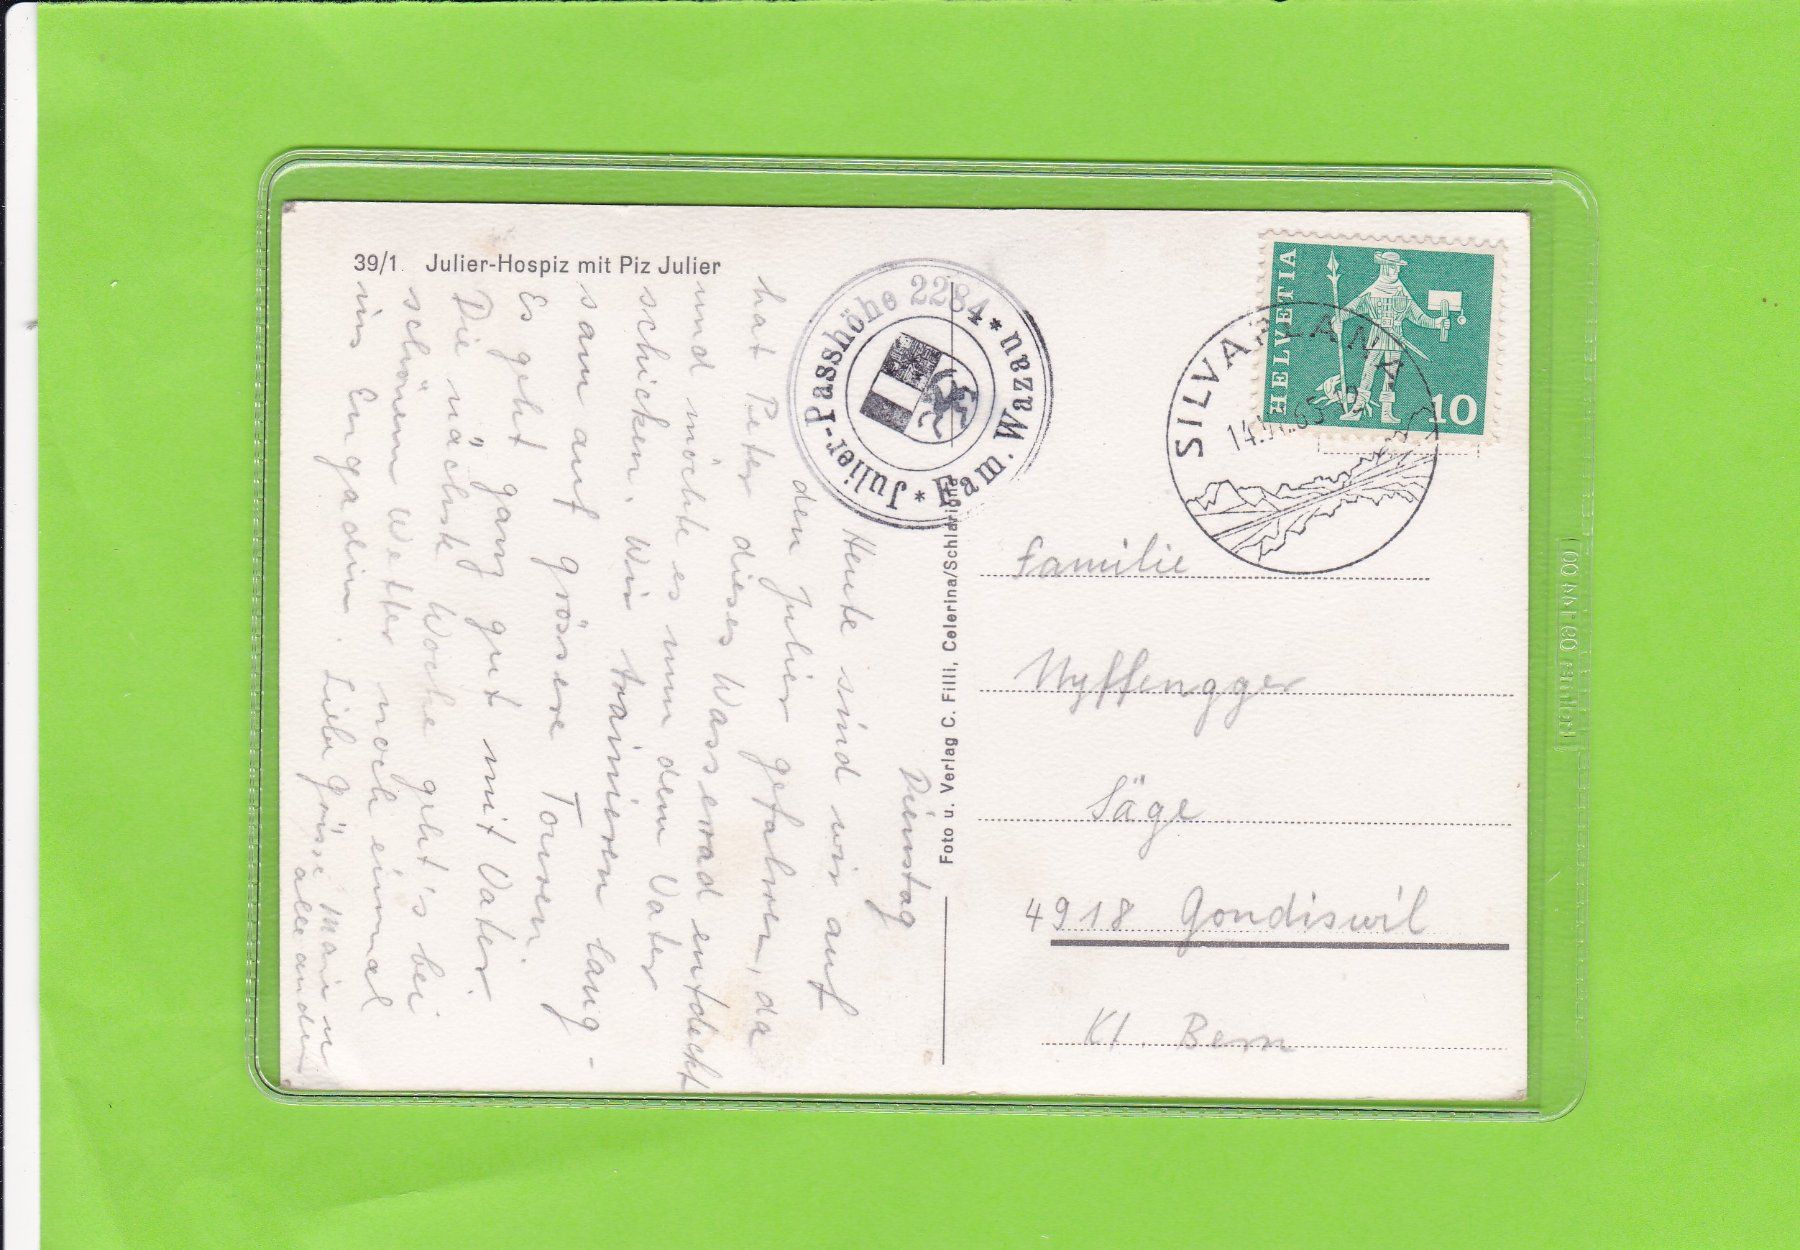 39/1. Julier-Hospiz mit Piz Julier
Julier-Passhöhe 2284 * Fam. Wazau *
HELVETIA
10
SILVAPLANA
Foto u. Verlag C. Filli, Celerina/Schlarigna
Dienstag
Heute sind wir auf
den Julier gefahren, da
hat Peter dieses Wasserrad entdeckt
und möchte es nun dem Vater
schicken. Wir trainieren lang-
sam auf grössere Touren.
Es geht ganz gut mit Vater.
Die nächste Woche geht's bei
schönem Wetter noch einmal
ins Engadin. Liebe Grüsse
alle andern
Familie
Nyffengger
Säge
4918 Gondiswil
Kt. Bern